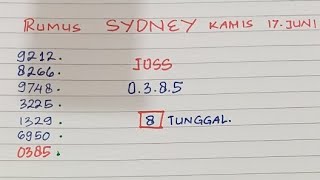 RUMUS SYDNEY KAMIS 17. JUNI
9212.
8266.
9748.
3225.
1329.
6950.
0385.
JOSS
0.3.8.5
8 TUNGGAL.